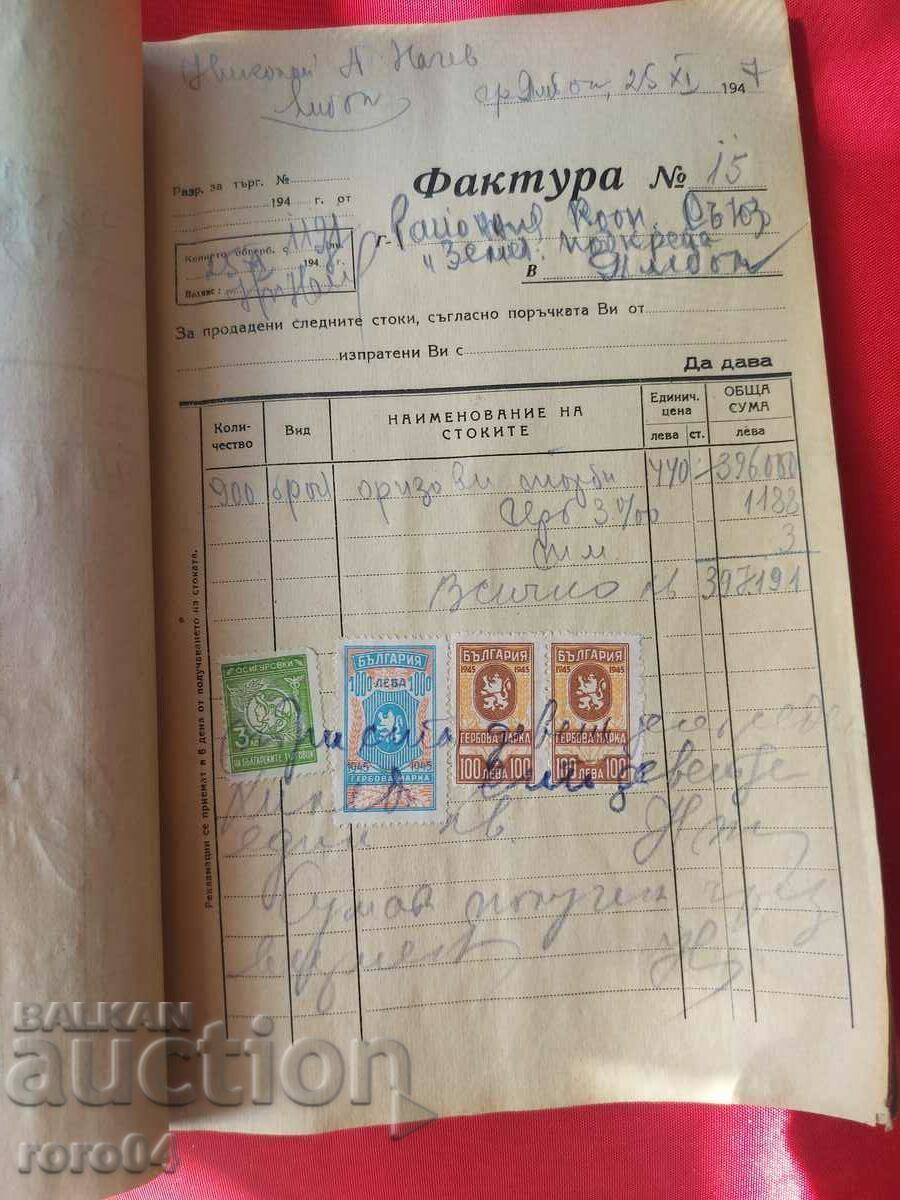 А Начев
Ямбол
гр Ямбол, 25 XI 1947
Разр. за търг. №
194 г. от
Фактура № 15
Копието обгерб. с 1191 лв.
25 XI 194 г.
Подпис:
Г- Районния Кооп. Съюз
"Земед. подкрепа
В Ямбол
За продадени следните стоки, съгласно поръчката Ви от
изпратени Ви с
Да дава
Коли-
чество
Вид
НАИМЕНОВАНИЕ НА
СТОКИТЕ
Единич.
цена
лева ст.
ОБЩА
СУМА
лева
900 броя оризови торби 440 396.000
Герб 3‰ 1188
3
Всичко лв 397191
Рекламации се приемат в 8 дена от получаването на стоката.
ОСИГУРОВКИ
3
НА БЪЛГАРСКИТЕ ТЪРГОВЦИ
БЪЛГАРИЯ
1000 ЛЕВА 1000
1945 1945
ГЕРБОВА МАРКА
БЪЛГАРИЯ
1945 1945
ГЕРБОВА МАРКА
100 ЛЕВА 100
БЪЛГАРИЯ
1945 1945
ГЕРБОВА МАРКА
100 ЛЕВА 100
един лв
Сумата получен чрез
BALKAN
auction
roro04